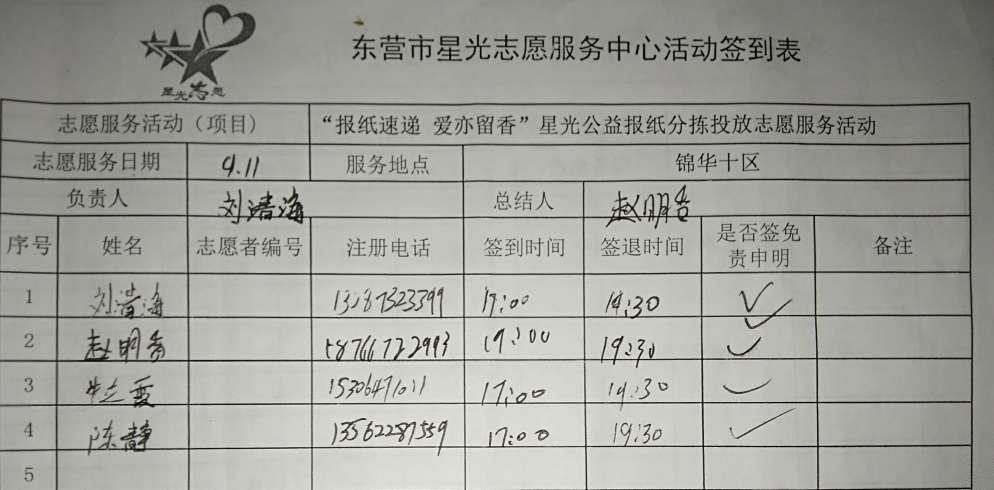 星光志愿
东营市星光志愿服务中心活动签到表
志愿服务活动（项目） “报纸速递 爱亦留香”星光公益报纸分拣投放志愿服务活动
志愿服务日期 9.11 服务地点 锦华十区
负责人 刘清海 总结人 赵明香
序号 姓名 志愿者编号 注册电话 签到时间 签退时间 是否签免责申明 备注
1 刘清海 17:00 19:30 ✓
2 赵明香 18766722993 19:30 ✓
3 牛立霞 17:00 19:30 ✓
4 陈静 13562287559 17:00 19:30 ✓
5